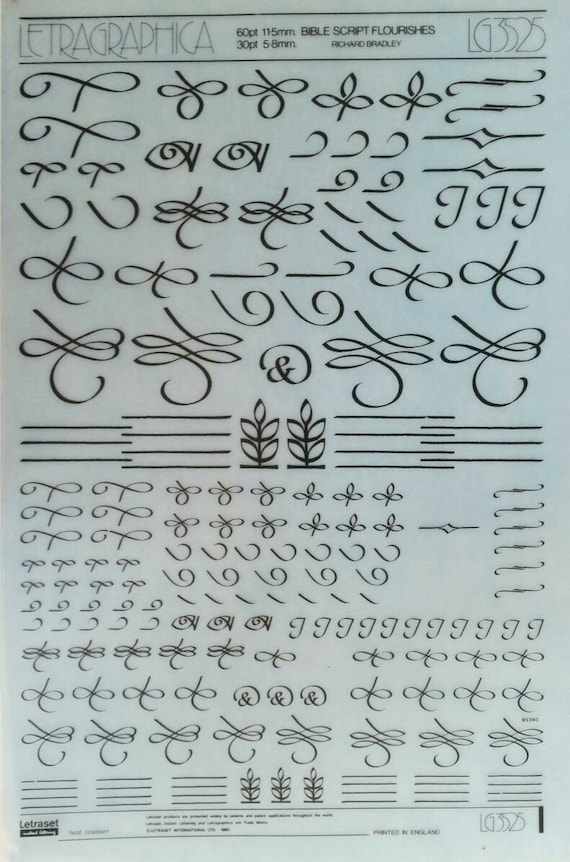 LETRAGRAPHICA
60pt 11·5mm. BIBLE SCRIPT FLOURISHES
30pt 5·8mm. RICHARD BRADLEY
LG3525
&
& & &
BS340
Letraset
instant lettering
heat resistant
Letraset products are protected widely by patents and patent applications throughout the world.
Letraset, Instant Lettering and Letragraphica are Trade Marks.
©LETRASET INTERNATIONAL LTD.
PRINTED IN ENGLAND
LG3525